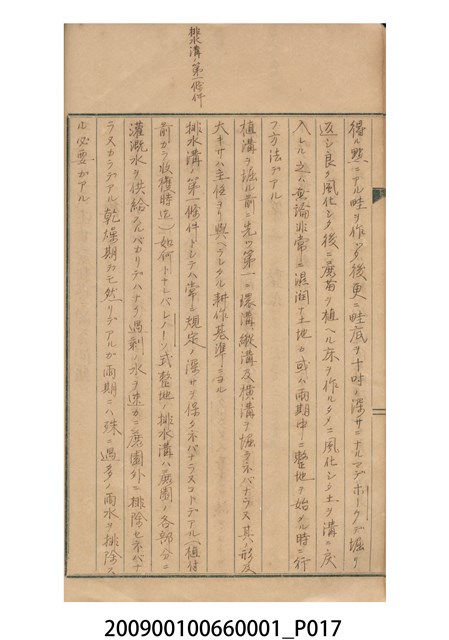 排水溝ノ第一條件
得ル點ニアル畦ヲ作リタ後更ニ畦底ヲ十吋ノ深サニナルマデホークデ堀リ
返シ良ク風化シタ後ニ蔗苗ヲ植ヘル床ヲ作ルタメニ風化シタ土ヲ溝ニ戻
入レル之ハ勿論非常ニ濕潤ナ土地カ或ハ雨期中ニ整地ヲ始メル時ニ行
フ方法デアル
植溝ヲ堀ル前ニ先ヅ第一ニ環溝縱溝及横溝ヲ堀ラネバナラヌ其ノ形及
大キサハ主任ヨリ與ヘラレタル耕作基準ニヨル
排水溝ノ第一條件トシテハ常ニ規定ノ深サヲ保タネバナラヌコトデアル(植付
前カラ收穫時迄)如何トナレバレノーソ式整地ノ排水溝ハ蔗園ノ各部分ニ
灌漑水ヲ供給スルバカリデハナク過剩ノ水ヲ速カニ蔗園外ニ排除セネバナ
ラヌカラデアル乾燥期カモ然リデアルガ雨期ニハ殊ニ過多ノ雨水ヲ排除ス
ル必要ガアル
200900100660001_P017